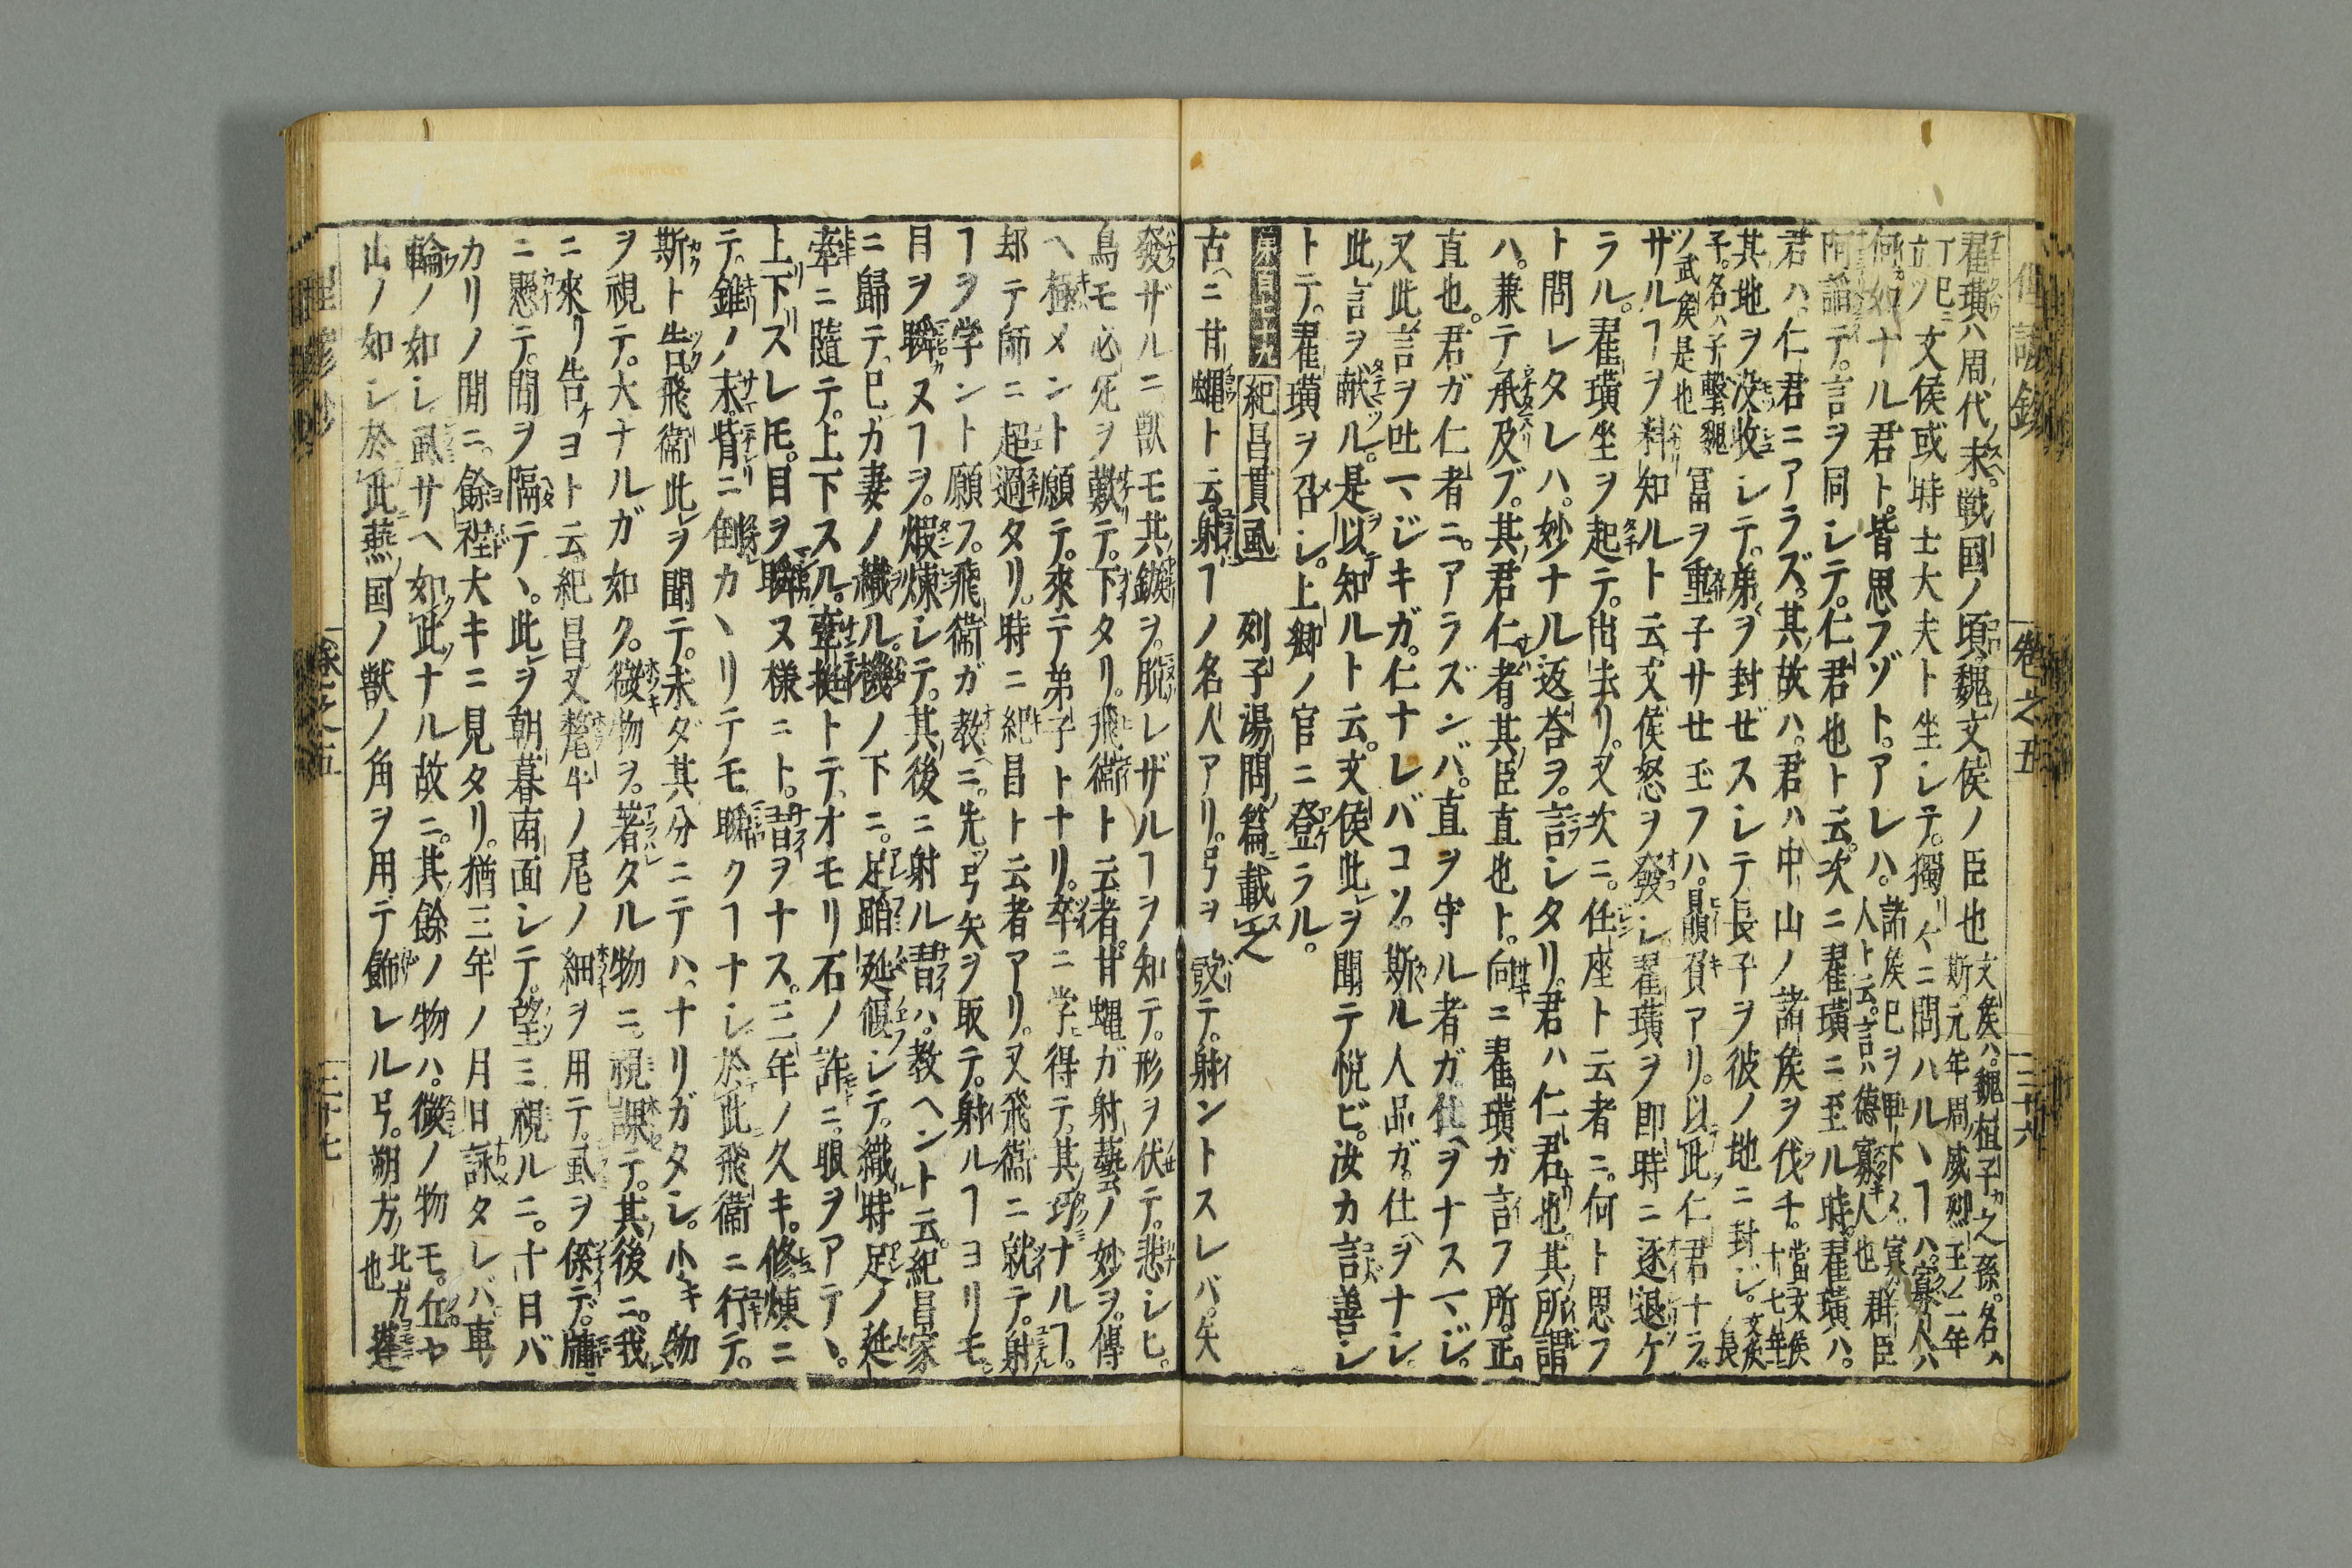 卷之五
三十六
翟璜ハ周ノ代ノ末。戦国ノ頃。魏ノ文侯ノ臣也 文矦ハ。魏桓子カ之孫。名ハ斯。元年周ノ威烈王ノ二年
丁巳ニ立ツ 文侯或時士大夫ト坐シテ。獨リ々ニ問ハルヽヿハ。寡人ハ
何如ナル君ト。皆思フゾト。アレハ。 諸矦巳ヲ卑下メ。寡人ト云。言ハ德寡キ人也 群臣
阿諂テ。言ヲ同シテ。仁君也ト云。次ニ翟璜ニ至ル時。翟璜ハ。
君ハ。仁君ニアラズ。其ノ故ハ。君ハ中山ノ諸矦ヲ伐チ。 當文侯十七年ニ
其地ヲ没收シテ。弟ヲ封ゼスシテ長子ヲ彼ノ地ニ封ジ。 文矦ノ長
子。名ハ子擊。魏ノ武矦是也 冨ヲ重子サセ玉フハ。贔負アリ。以此仁君ナラ
ザルヿヲ料知ルト云。文侯怒ヲ發シ。翟璜ヲ即時ニ逐退ケ
ラル。翟璜坐ヲ起テ。出去リ。又次ニ。任座ト云者ニ。何ト思フ
ト問レタレハ。妙ナル返荅ヲ。言シタリ。君ハ仁君也。其所謂
ハ。兼テ承及ブ。其君仁者其ノ臣直也ト。向ニ翟璜ガ言フ所。正
直也。君ガ仁者ニ。アラズンバ。直ヲ守ル者ガ。仕ヘヲナスマジ。
又此言ヲ吐マジキガ。仁ナレバコソ。斯ル人品ガ。仕ヘヲナシ。
此ノ言ヲ献ル。是ヲ以テ知ルト云。文侯此ヲ聞テ悦ビ。汝カ言善シ
トテ。翟璜ヲ召シ。上卿ノ官ニ登ラル。
紀昌貫虱 列子湯問ノ篇ニ載ス之
古ヘニ甘蠅ト云。射ヿノ名人アリ。弓ヲ彀テ。射ントスレバ。矢
發ザルニ。獸モ其鏃ヲ。脱レザルヿヲ知テ。形ヲ伏テ。悲シヒ。
鳥モ必死ヲ歎テ。下タリ。飛衞ト云者。甘蠅ガ射藝ノ妙ヲ。傳
ヘ極メント願テ。來テ弟子トナリ。卒ニ学得テ。其ノ巧ナルヿ。
却テ師ニ超過タリ。時ニ紀昌ト云者アリ。又飛衞ニ就テ。射
ヿヲ学ント願フ。飛衞ガ教ヘニ。先ツ弓矢ヲ取テ。射ルヿヨリモ。
目ヲ瞬ヌヿヲ。煆煉シテ。其ノ後ニ射ル昔ハ。教ヘント云。紀昌家
ニ歸テ。巳ガ妻ノ織ル。機ノ下ニ。足踏延偃シテ。織時足ノ延
牽ニ隨テ。上下スル。牽挺トテ。オモリ石ノ許ニ。眼ヲアテヽ。
上下スレ𪜈。目ヲ瞬ヌ様ニト。昔ヲナス。三年ノ久キ。修煉ニ
テ。錐ノ末眥ニ倒カヽリテモ瞬クヿナシ。於此飛衞ニ行テ。
斯ト告。飛衞此ヲ聞テ。未ダ其分ニテハ。ナリガタシ。小キ物
ヲ視テ。大ナルガ如ク。微物ヲ。著タル物ニ。視課テ。其後ニ。我
ニ來リ告ケヨト云。紀昌又犛牛ノ尾ノ細ヲ用テ。虱ヲ係テ。牖
ニ懸テ。間ヲ隔テヽ。此ヲ朝暮南面シテ。望ミ視ルニ。十日バ
カリノ間ニ。餘程大キニ見タリ。猶三年ノ月日詠タレバ車
輪ノ如シ。虱サヘ如此ナル故ニ。其ノ餘ノ物ハ。微ノ物モ。丘ヤ
山ノ如シ於此燕国ノ獸ノ角ヲ用テ飾レル弓。朔方ノ 北方也 蓬
卷之五
三十七